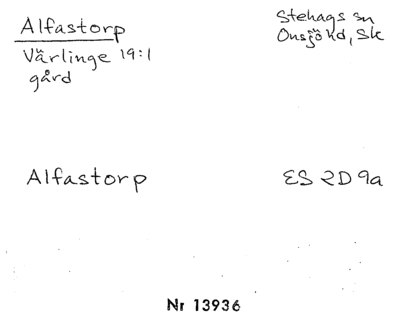 Alfastorp
Stehags sn
Onsjö hd, Sk
Värlinge 19:1
gård
Alfastorp
ES 2D 9a
Nr 13936